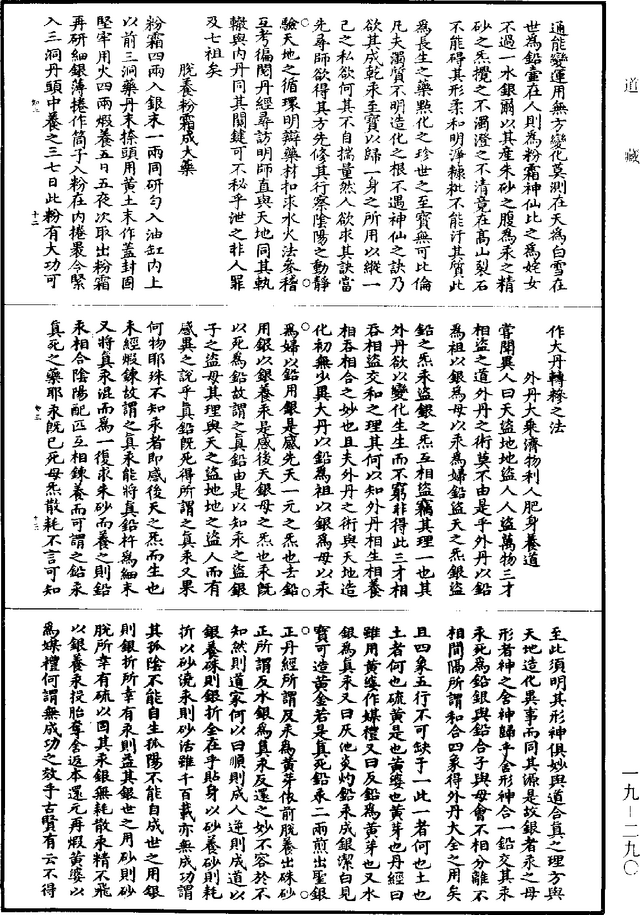 道藏
通能變運用無方變化莫測在天為白雪在
世為鉛汞在人則為粉霜神仙比之為姹女
不過一水銀爾以其產朱砂之腹為汞之精
砂之炁攪之不濁澄之不清竟在高山裂石
不能碍其形柔和明淨穢秕不能汙其質此
為長生之藥點化之珍世之至寶無可比倫
凡夫濁質不明造化之根不遇神仙之訣乃
欲其成乾汞至寶以歸一身之所用以縱一
己之私欲何其不自揣量然人欲求其訣當
先尋師欲得其方先修其行察陰陽之動靜
驗天地之循環明辯藥材扣求水火法參稽
互考徧閱丹經尋訪明師直與天地同其軌
轍與內丹同其關鍵可不秘乎泄之非人罪
及七祖矣
脫養粉霜成大藥
粉霜四兩入銀末一兩同研勻入油缸內上
以前三洞藥丹末捺頭用黃土末作蓋封固
堅牢用火四兩煅養五日五夜次取出粉霜
再研細銀薄捲作筒子入粉在內捲褁令緊
入三洞丹頭中養之三七日此粉有大功可
十二
作大丹轉糝之法
外丹大乘濟物利人肥身養道
嘗聞異人曰天盜地地盜人人盜萬物三才
相盜之道外丹之術莫不由是乎外丹以鉛
為祖以銀為母以汞為婦鉛盜天之炁銀盜
鉛之炁汞盜銀之炁互相盜竊其理一也其
外丹欲以變化生生而不窮非得此三才相
吞相盜交和之理其何以知外丹相生相養
相吞相合之妙也且夫外丹之術與天地造
化初無少異大丹以鉛為祖以銀為母以汞
為婦以鉛用銀是感先天一元之炁也去鉛
用銀以銀養汞是感後天銀母之炁也汞既
以死為鉛故謂之真鉛由是以知汞之盜銀
子之盜母其理與天之盜地地之盜人而有
感異之說乎真鉛既死得所謂之真汞又果
何物耶殊不知汞者即感後天之炁而生也
未經煅鍊故謂之真汞能將真鉛杵為細末
又將真汞混而為一復求朱砂而養之則鉛
汞相合陰陽配匹互相鍊養而可謂之鉛汞
真死之藥耶汞既已死母炁散耗不言可知
十三
至此須明其形神俱妙與道合真之理方與
天地造化異事而同其源是故銀者汞之母
形者神之舍神歸乎舍形神合一鉛交其汞
汞死為鉛銀與鉛合子與母會不相分離不
相間隔所謂和合四象得外丹大全之用矣
且四象五行不可缺于一此一者何也土也
土者何也硫黃是也黃婆也黃芽也丹經曰
雖用黃婆作媒禮又曰反鉛為黃芽也又水
銀為真汞又曰灰池炎灼鉛汞成銀潔白見
寶可造黃金若是真死鉛汞二兩煎出聖銀
正丹經所謂反汞為黃芽依前脫養出硃砂
正所謂反水銀為真汞反還之妙不容於不
知然則道家何以曰順則成人逆則成道以
銀養硃則銀折全在乎貼身以砂養砂則耗
折以砂澆汞則砂活雖千百載亦無成功謂
其孤陰不能自生孤陽不能自成世之用銀
則銀折所幸有汞則益其銀世之用砂則砂
脫所幸有硫以固其汞銀無耗散汞精不飛
以銀養汞投胎奪舍返本還元再煅黃婆以
為媒禮何謂無成功之效乎古賢有云不得
一九－二九〇